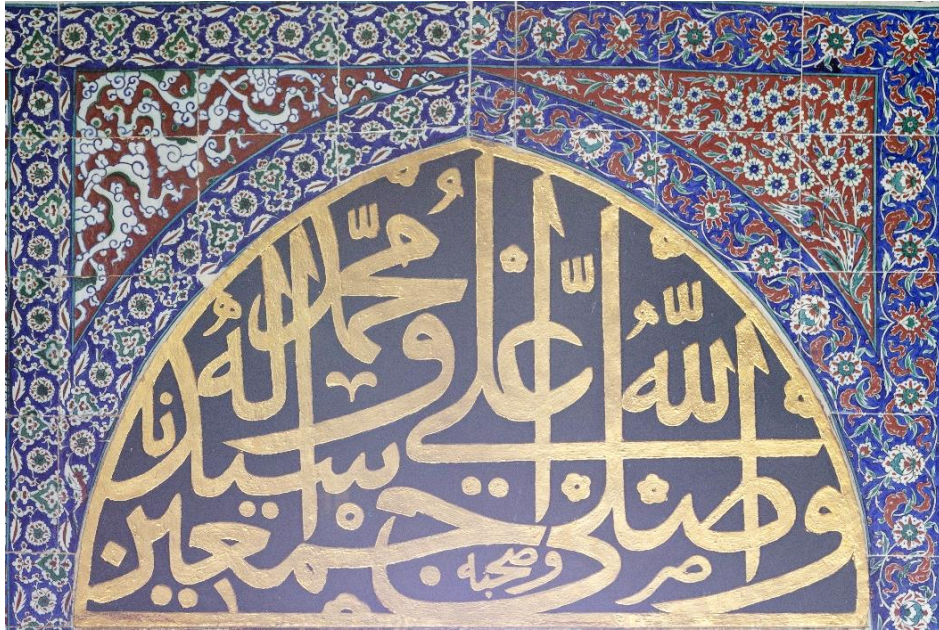 وصلى الله على سيدنا محمد وآله وصحبه اجمعين